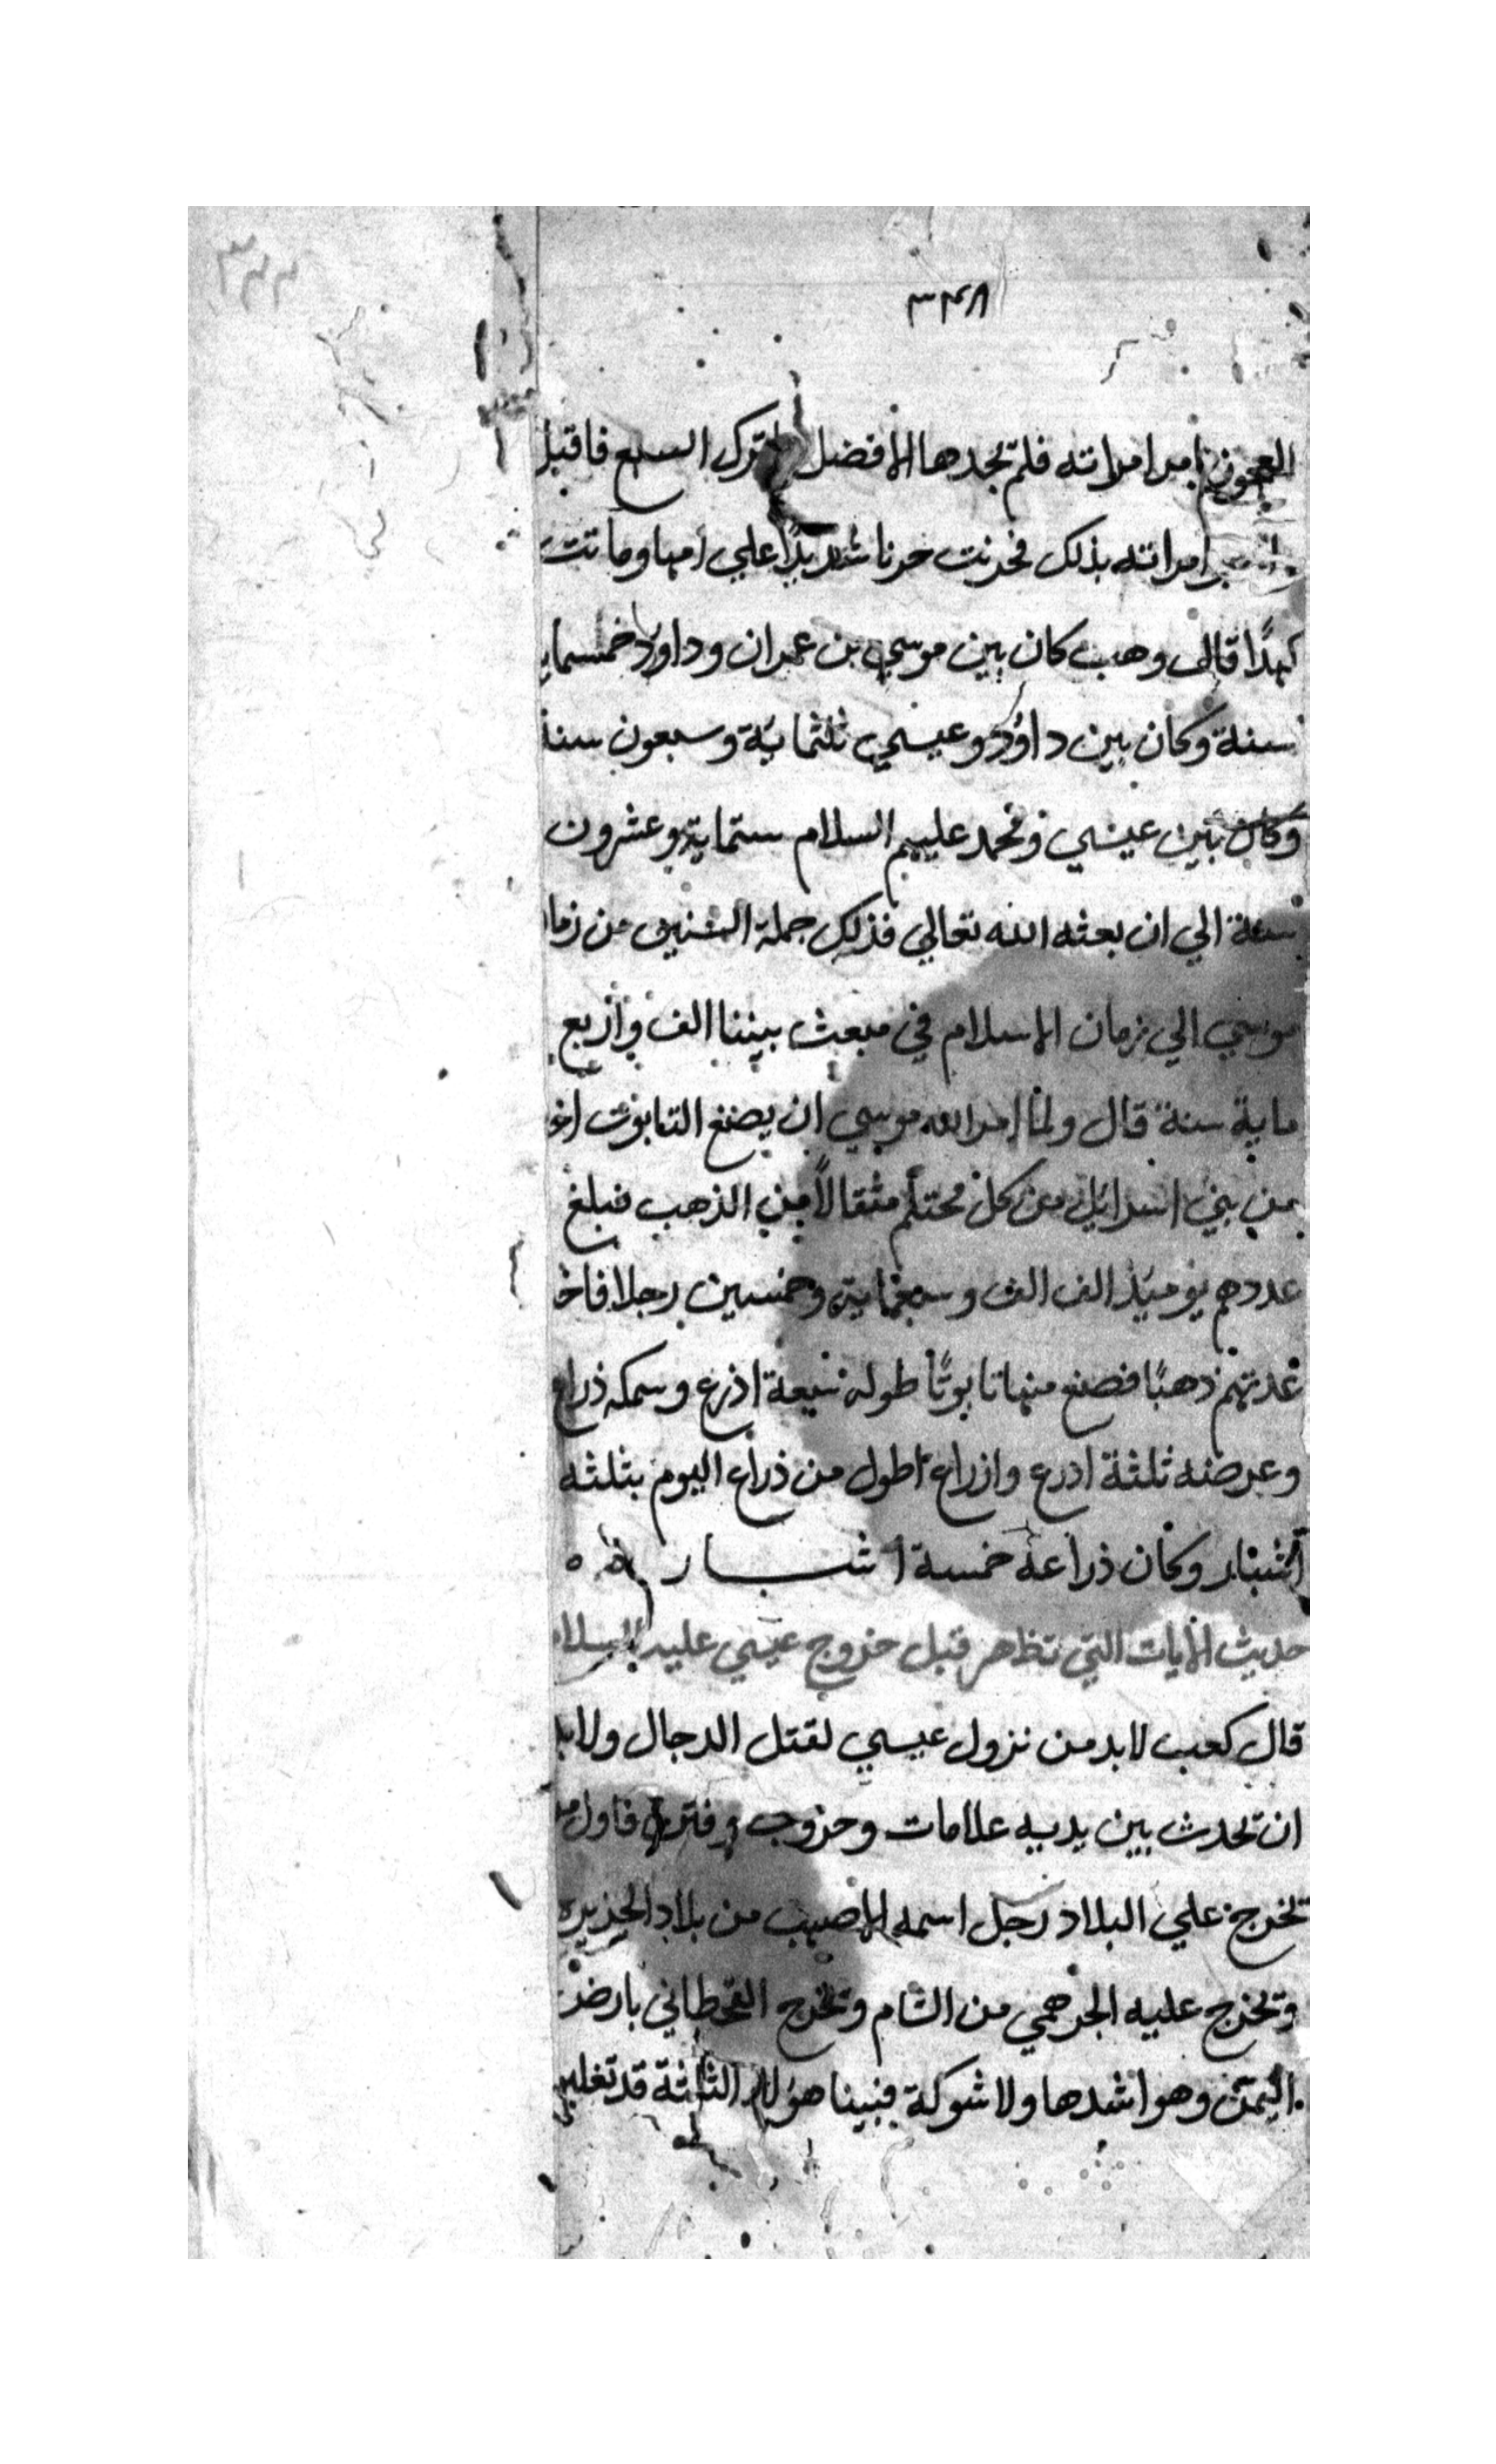 ٣٤٨
العجوز ام امراته فلم تجدها الا فضل ترك السبع فاقبل
امراته بذلك فحزنت حزنا شديدًا علي امها وماتت
كمدًا قال وهب كان بين موسي بن عمران وداود خمسماية
سنة وكان بين داؤد وعيسي ثلثماية وسبعون سنة
وكان بين عيسي ومحمد عليهم السلام ستماية وعشرون
سنة الي ان بعثه الله تعالي فذلك جملة السنين من زما
موسي الي زمان الاسلام في مبعث نبينا الف واربع
ماية سنة قال ولما امر الله موسي ان يصنع التابوت اخذ
من بني اسرائيل من كل محتلم مثقالاً من الذهب فبلغ
عددهم يوميذ الف الف وسبعماية وخمسين رجلا فاخذ
عدتهم ذهبًا فصنع منها تابوتًا طوله سبعة اذرع وسمكه ذراع
وعرضه ثلثة ادرع وازراع اطول من ذراع اليوم بثلثه
اشبار وكان ذراعه خمسة اشبار
حديث الايات التي تظاهر قبل خروج عيسي عليه السلام
قال كعب لابد من نزول عيسي لقتل الدجال ولابد
ان تحدث بين يديه علامات وحروب وفتن فاول من
تخرج علي البلاد رجل اسمه الاصهب من بلاد الجزيره
وتخرج عليه الجرهمي من الشام وتخرج القحطاني بارض
اليمن وهو اشدها ولا شوكة فبينا هؤلاء الثلثة قد تغلبو